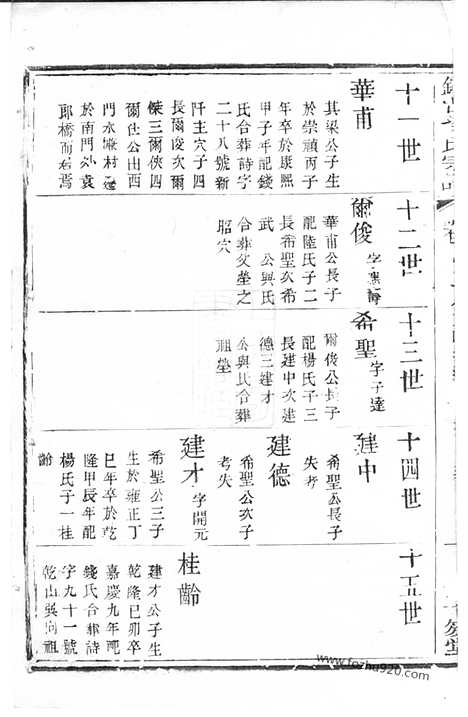 十一世
華甫
其梁公子生
於崇禎丙子
年卒於康熙
甲子年配錢
氏合葬詩字
二十八號新
阡主穴子四
長爾俊次爾
傑三爾俠四
爾仕公由西
門水廠村遷
於南門外袁
郎橋而居焉
十二世
爾俊 字
華甫公長子
配陸氏子二
長希聖次希
武 公與氏
合葬父塋之
昭穴
十三世
希聖 字子達
爾俊公長子
配楊氏子三
長建中次建
德三建才
公與氏合葬
祖塋
十四世
建中
希聖公長子
失考
建德
希聖公次子
考失
建才 字開元
希聖公三子
生於雍正丁
巳年卒於乾
隆甲辰年配
楊氏子一桂
齡
十五世
桂齡
建才公子生
乾隆已卯卒
嘉慶九年配
錢氏合葬詩
字九十一號
乾山吳向祖
www.fozhu920.com